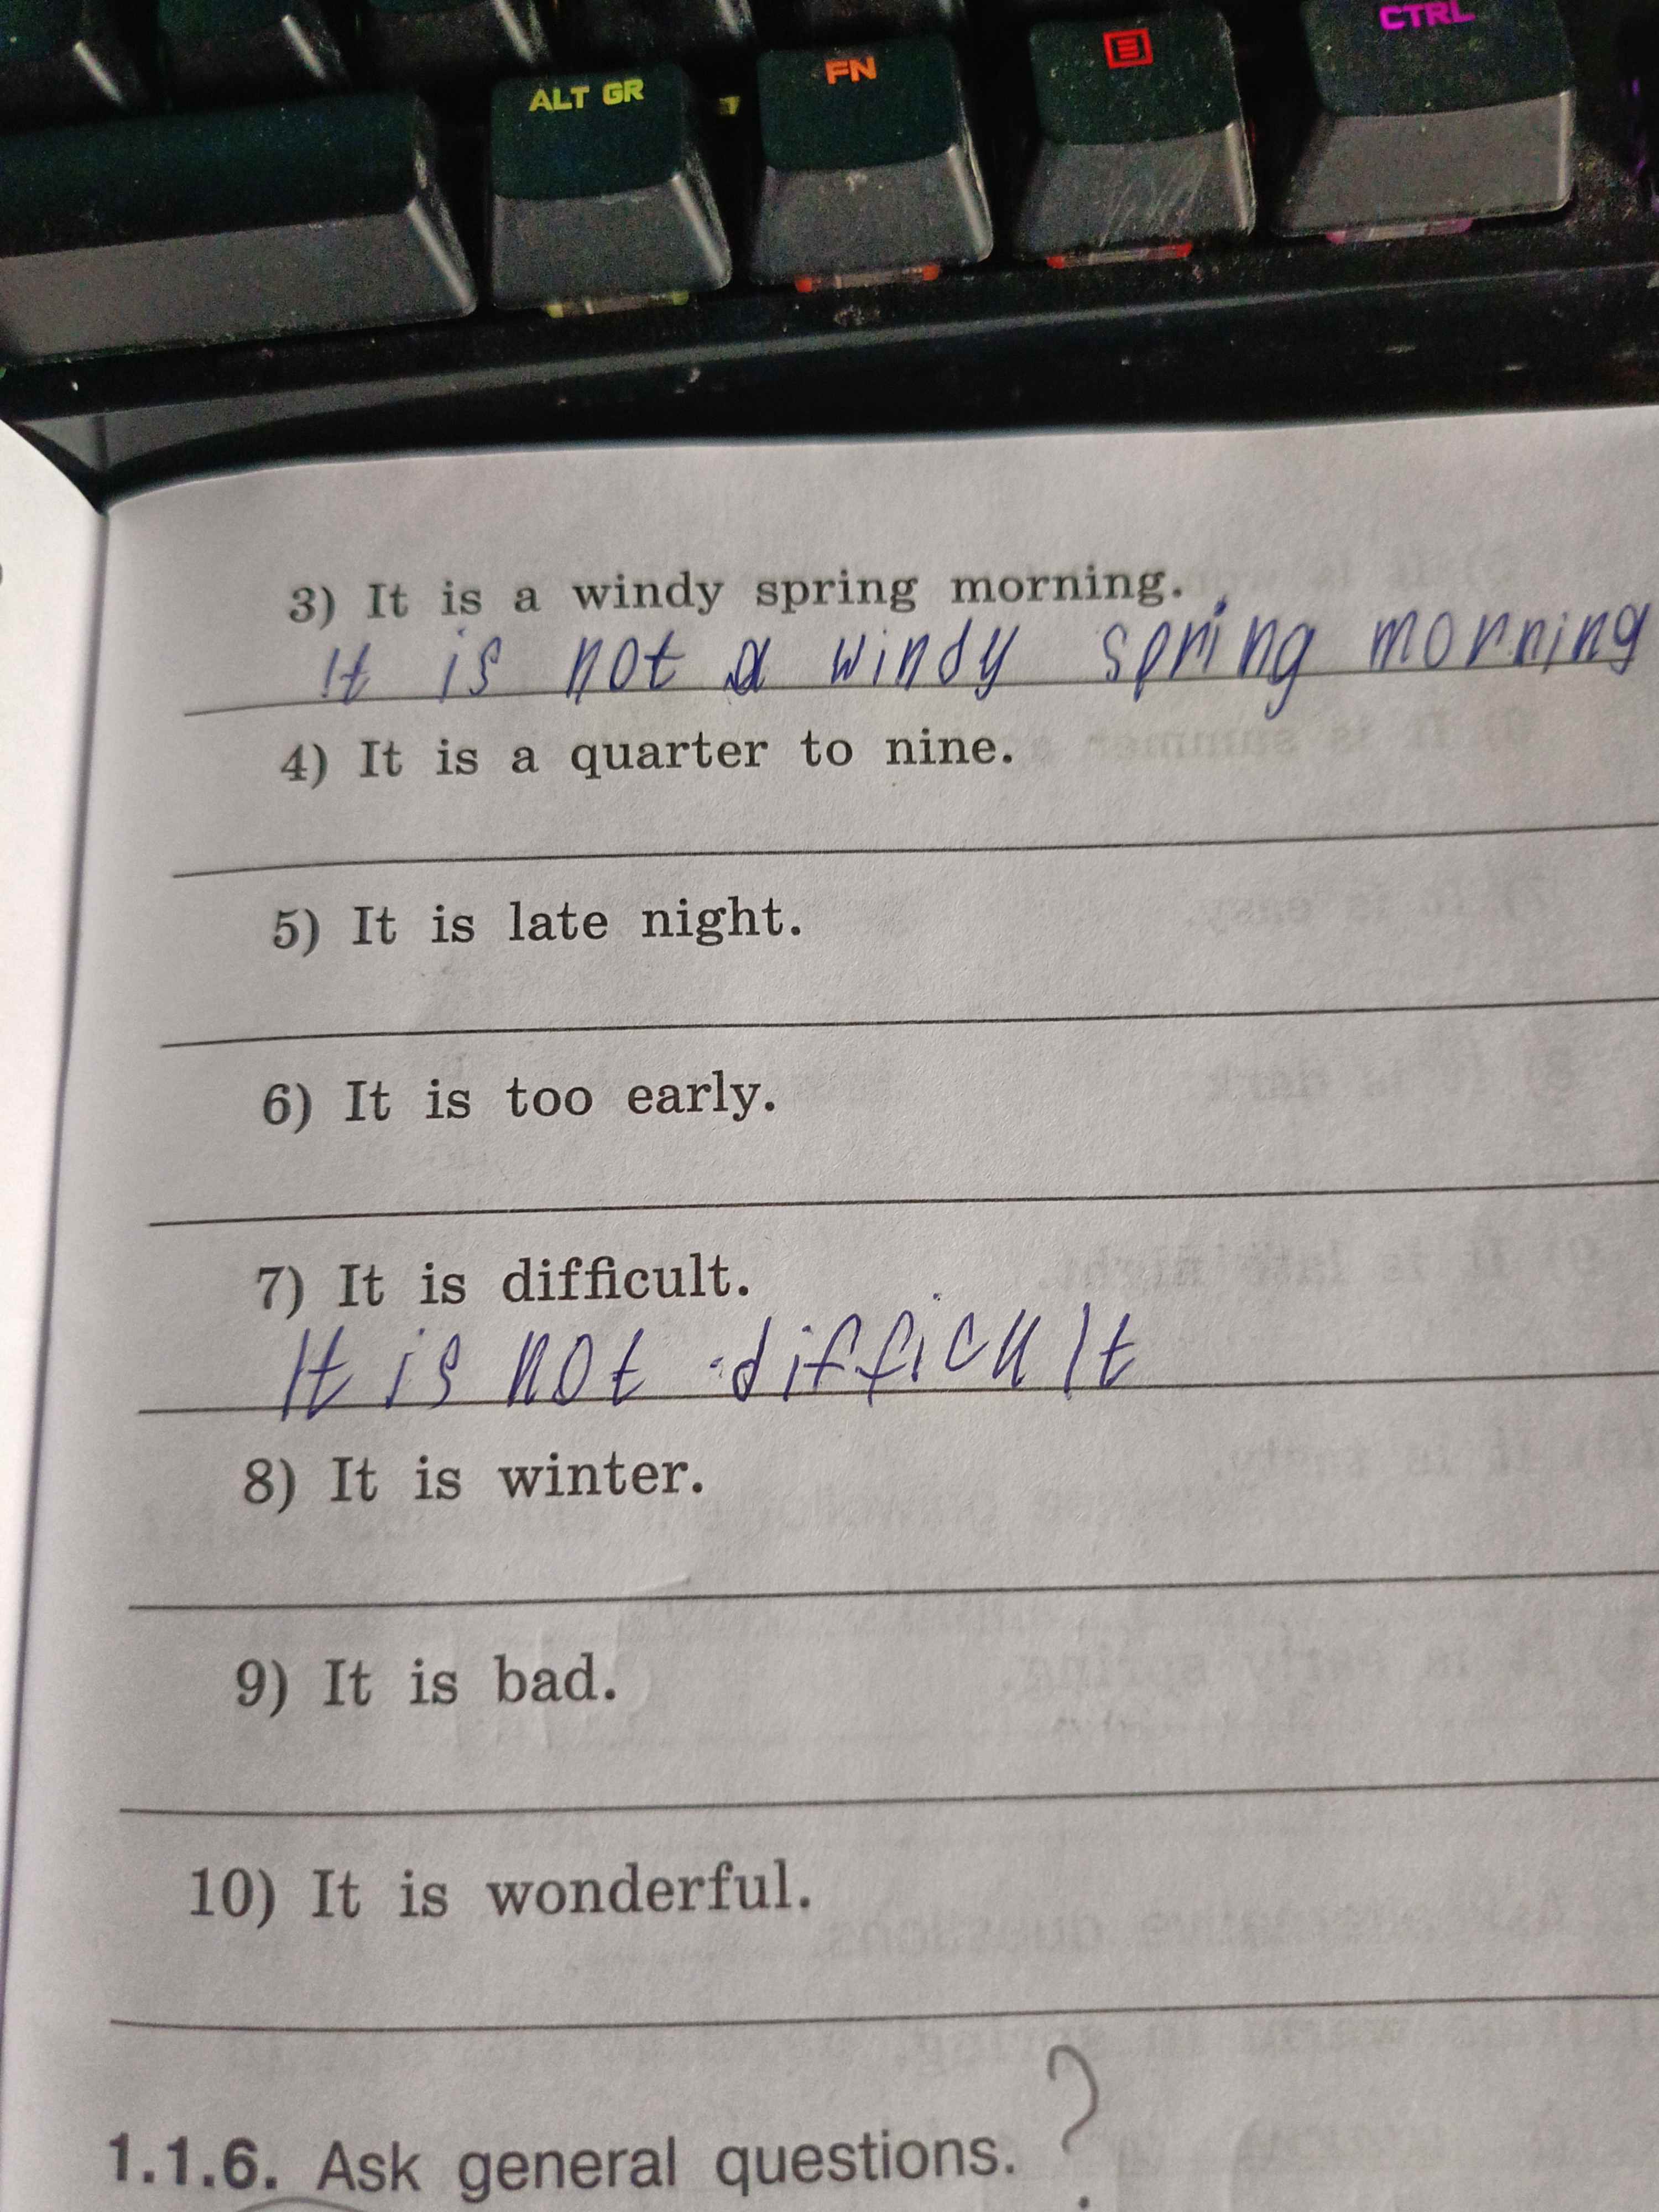 ALT GR FN CTRL
3) It is a windy spring morning.
It is not a windy spring morning
4) It is a quarter to nine.
5) It is late night.
6) It is too early.
7) It is difficult.
It is not difficult
8) It is winter.
9) It is bad.
10) It is wonderful.
?
1.1.6. Ask general questions.